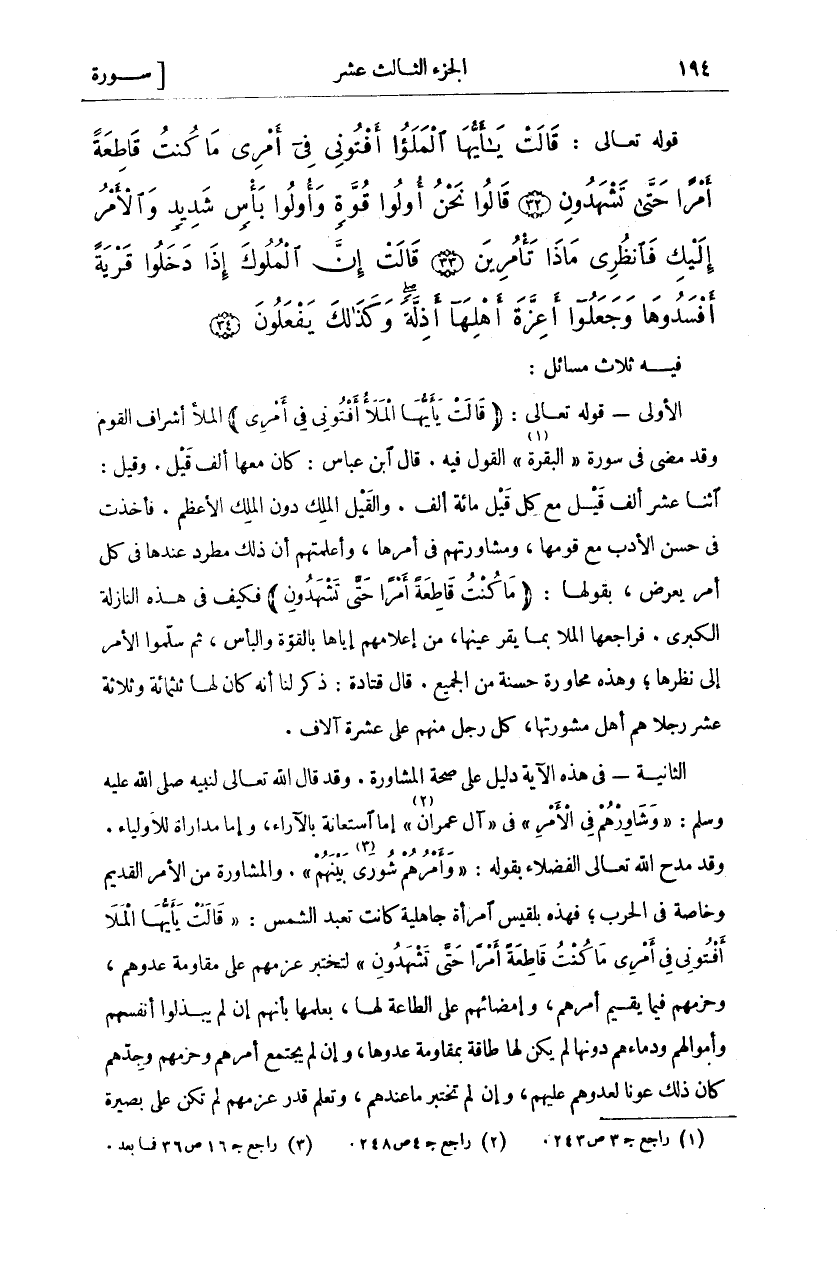 ١٩٤ الجزء الثالث عشر [ ســورة
قوله تعـالى : قَالَتْ يَـٰٓأَيُّهَا ٱلْمَلَؤُا أَفْتُونِى فِىٓ أَمْرِى مَا كُنتُ قَاطِعَةً
أَمْرًا حَتَّىٰ تَشْهَدُونِ ﴿٣٢﴾ قَالُوا نَحْنُ أُولُوا قُوَّةٍ وَأُولُوا بَأْسٍ شَدِيدٍ وَٱلْأَمْرُ
إِلَيْكِ فَٱنظُرِى مَاذَا تَأْمُرِينَ ﴿٣٣﴾ قَالَتْ إِنَّ ٱلْمُلُوكَ إِذَا دَخَلُوا قَرْيَةً
أَفْسَدُوهَا وَجَعَلُوٓا أَعِزَّةَ أَهْلِهَآ أَذِلَّةً ۖ وَكَذَٰلِكَ يَفْعَلُونَ ﴿٣٤﴾
فيــه ثلاث مسائل :
الأولى — قوله تعـالى : ﴿ قَالَتْ يَأَيُّهَـا الْمَلَأُ أَفْتُونِى فِى أَمْرِى ﴾ الملأ أشراف القوم
وقد مضى فى سورة « البقرة » (١) القول فيه . قال ٱبن عباس : كان معها ألف قَيْل . وقيل :
ٱثنـا عشر ألف قَيْــل مع كل قَيْل مائة ألف . والقَيْل الملك دون الملك الأعظم . فأخذت
فى حسن الأدب مع قومها ، ومشاورتهم فى أمرها ، وأعلمتهم أن ذلك مطرد عندها فى كل
أمر يعرض ، بقولهـا : ﴿ مَا كُنْتُ قَاطِعَةً أَمْرًا حَتَّى تَشْهَدُونِ ﴾ فكيف فى هـذه النازلة
الكبرى . فراجعها الملا بمـا يقر عينها، من إعلامهم إياها بالقوّة والبأس ، ثم سلّموا الأمر
إلى نظرها ؛ وهذه محاورة حسنة من الجميع . قال قتادة : ذكر لنا أنه كان لهـا ثلثمائة وثلاثة
عشر رجلا هم أهل مشورتها، كل رجل منهم على عشرة آلاف .
الثانيـة — فى هذه الآية دليل على صحة المشاورة . وقد قال الله تعـالى لنبيه صلى الله عليه
وسلم : « وَشَاوِرْهُمْ فِى الْأَمْرِ » فى « آل عمران » (٢) إما ٱستعانة بالآراء، وإما مداراة للأولياء .
وقد مدح الله تعـالى الفضلاء بقوله : « وَأَمْرُهُمْ شُورَى بَيْنَهُمْ » (٣) . والمشاورة من الأمر القديم
وخاصة فى الحرب ؛ فهذه بلقيس ٱمرأة جاهلية كانت تعبد الشمس : « قَالَتْ يَأَيُّهَـا الْمَلَأُ
أَفْتُونِى فِى أَمْرِى مَا كُنْتُ قَاطِعَةً أَمْرًا حَتَّى تَشْهَدُونِ » لتختبر عزمهم على مقاومة عدوهم ،
وحزمهم فيما يقــيم أمرهم ، وإمضائهم على الطاعة لهـا ، بعلمها بأنهم إن لم يبــذلوا أنفسهم
وأموالهم ودماءهم دونها لم يكن لها طاقة بمقاومة عدوها، وإن لم يجتمع أمرهم وحزمهم وجِدّهم
كان ذلك عونا لعدوهم عليهم ، وإن لم تختبر ماعندهم ، وتعلم قدر عزمهم لم تكن على بصيرة
(١) راجع جـ ٣ ص ٢٤٣ . (٢) راجع جـ ٤ ص ٢٤٨ . (٣) راجع جـ ١٦ ص ٣٦ فـا بعد .